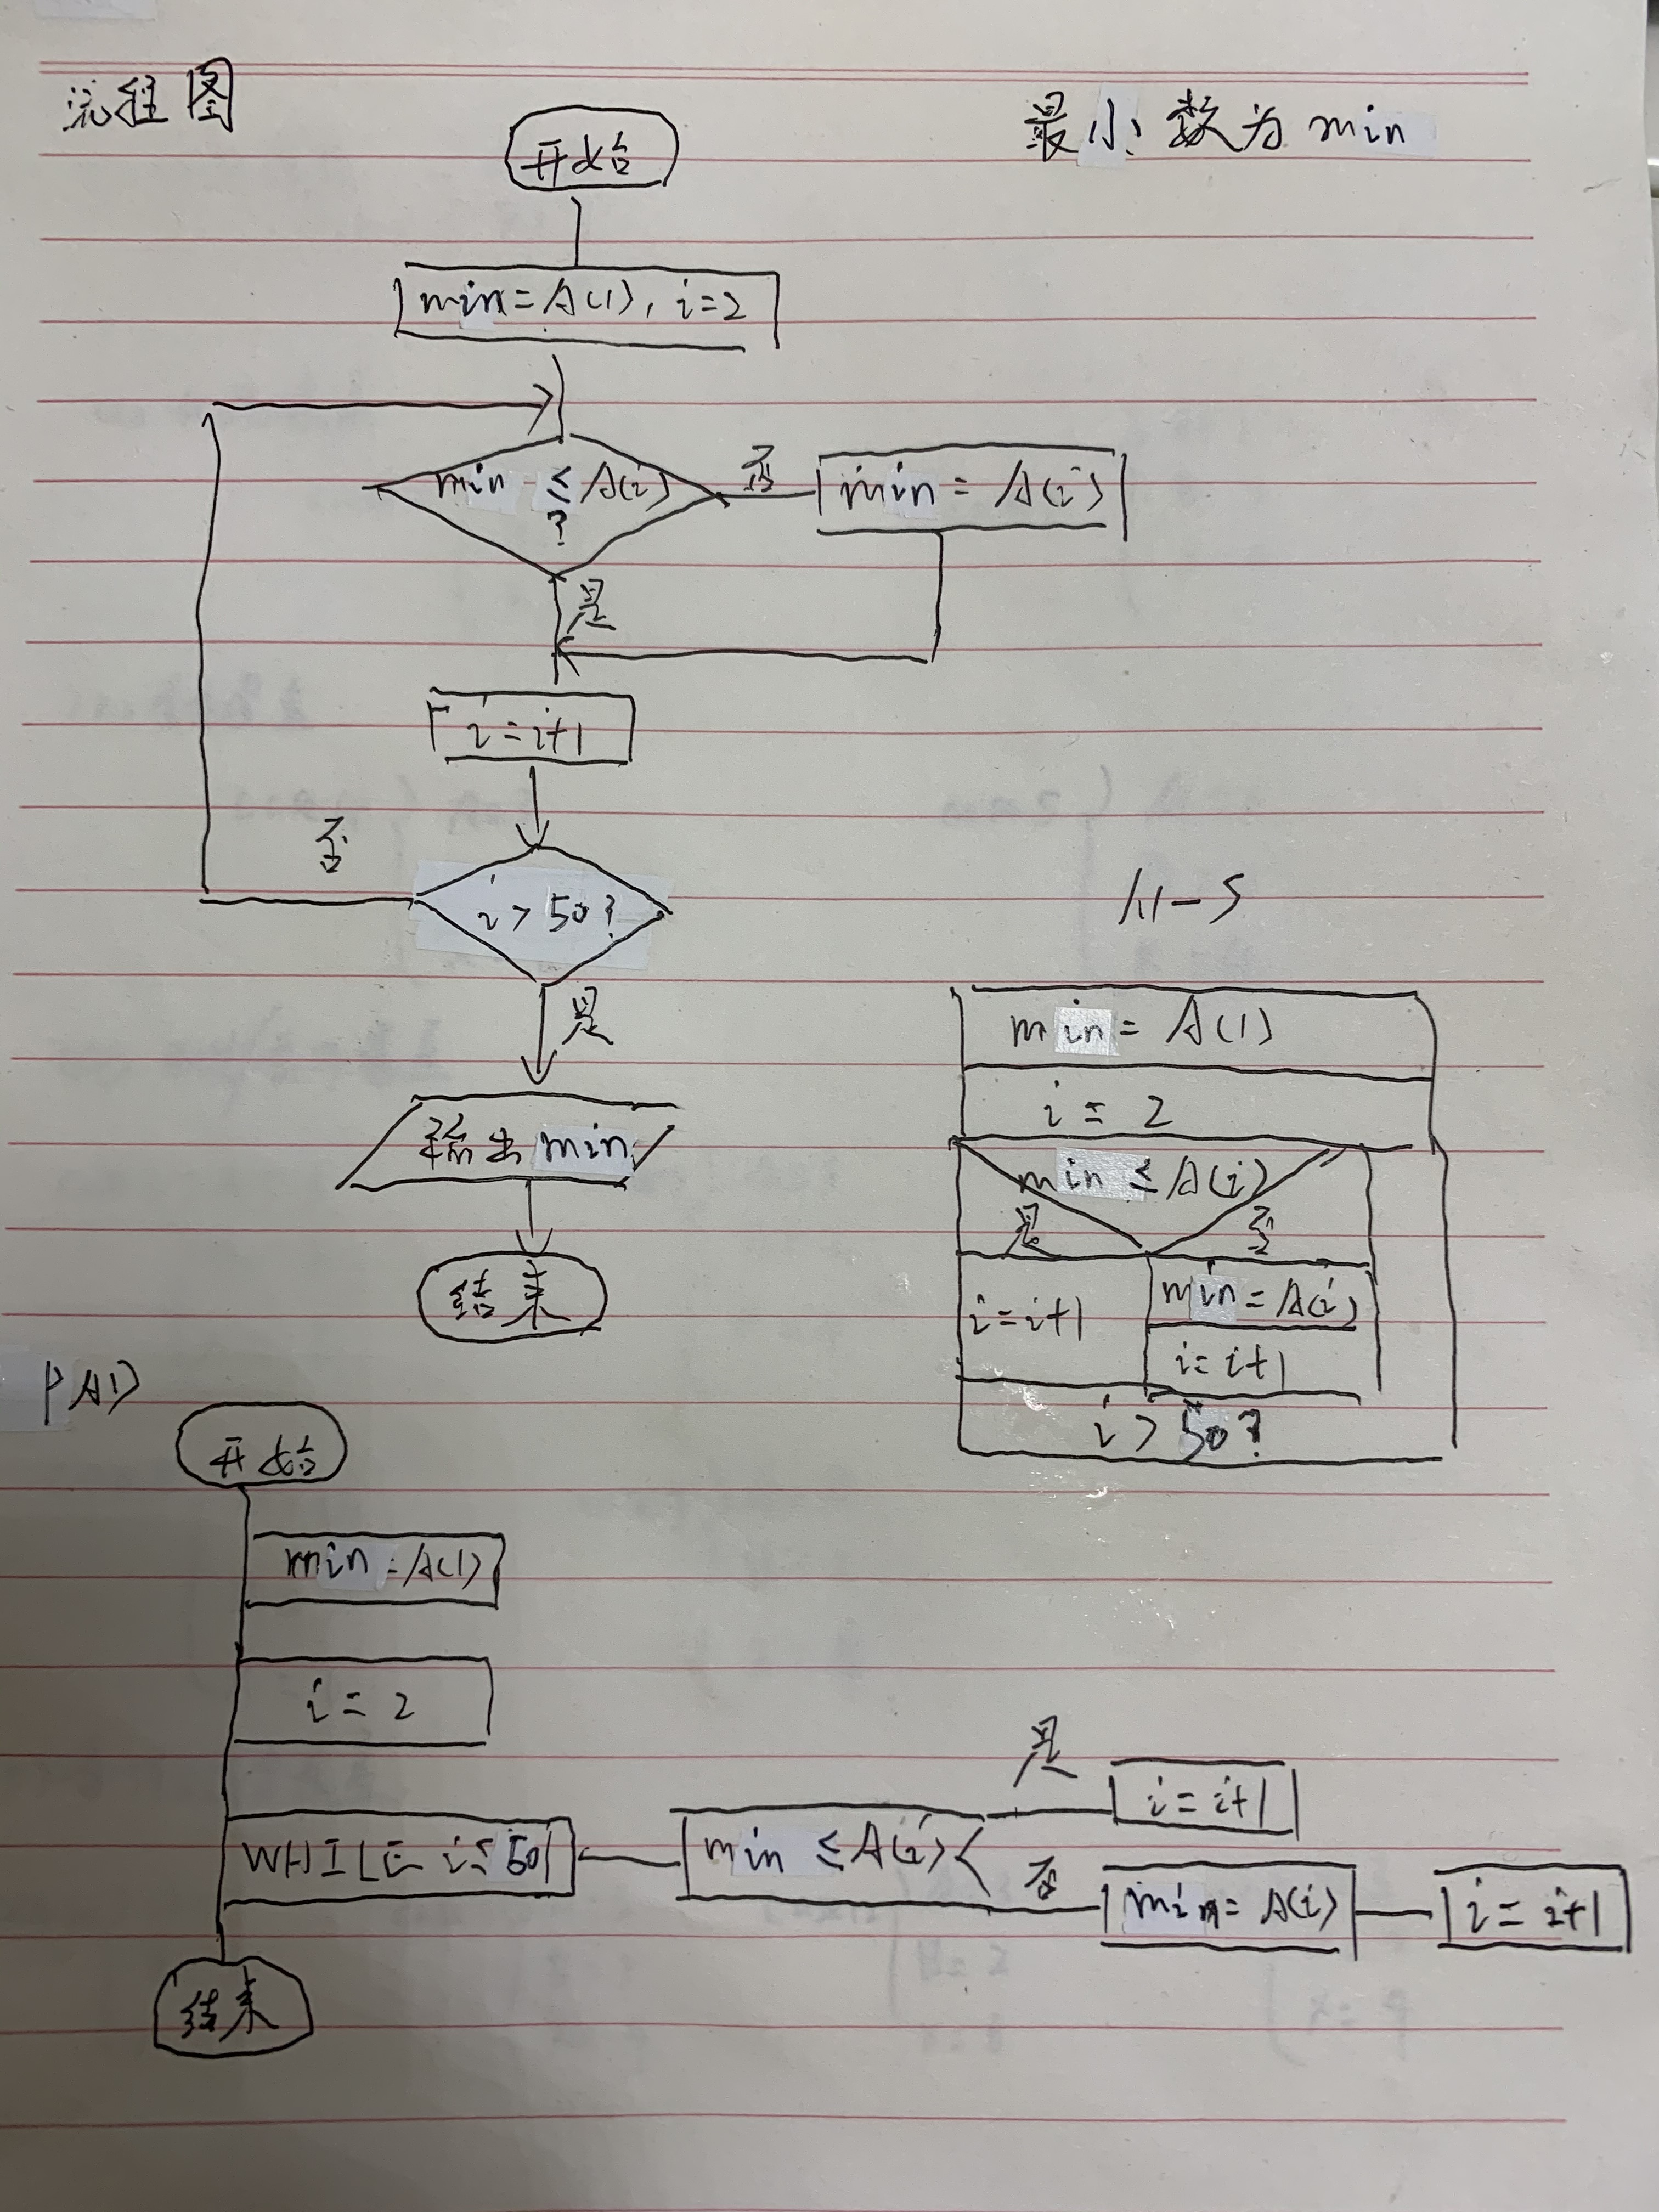 流程图
最小数为min
开始
min=A(1), i=2
min ≤ A(i)
?
否
min = A(i)
是
i=i+1
否
i > 50?
是
输出min
结束
N-S
min = A(1)
i = 2
min ≤ A(i)
是 否
i=i+1
min=A(i)
i=i+1
i > 50?
PAD
开始
min=A(1)
i = 2
WHILE i≤50
min ≤A(i)
是
i=i+1
否
min=A(i)
i=i+1
结束